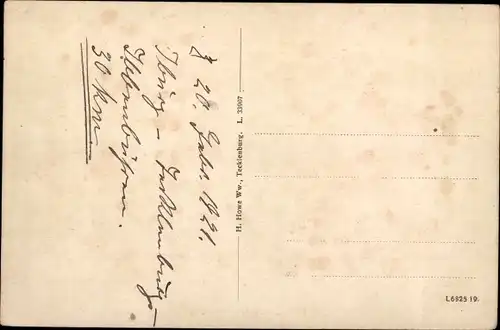 20. Febr. 1921.
Iburg – Tecklenburg –
Ibbenbüren.
30 km.
H. Howe Ww., Tecklenburg. L. 33907
L6825 19.